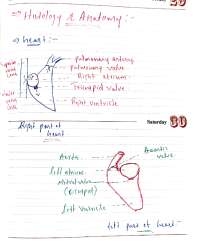 => Histology & Anatomy :-
=> heart :-
Pulmonary artery
Pulmonary valve
Right atrium
Tricuspid valve
Right ventricle
Right part of heart
Saturday 30
Aorta
Aortic valve
left atrium
mitral valve
(bicuspid)
left ventricle
left part of heart :-